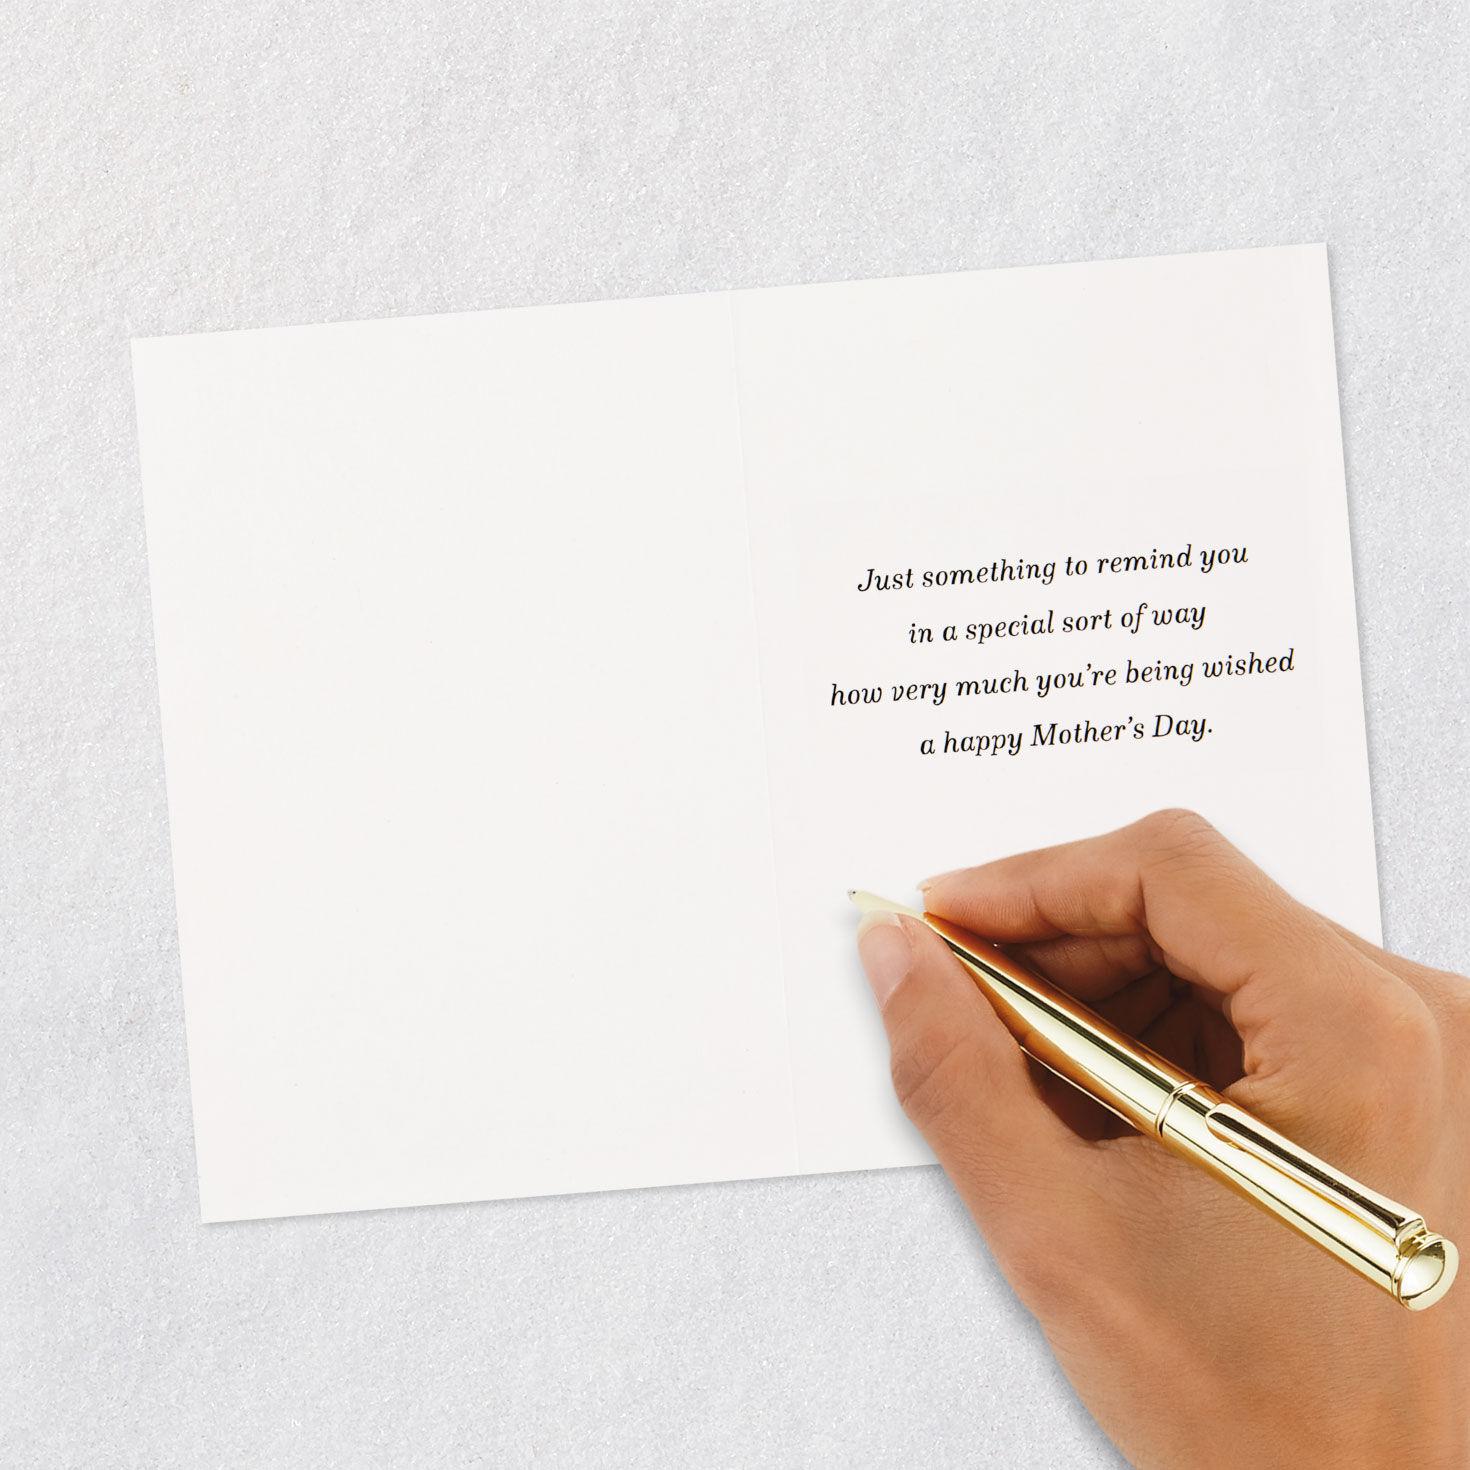 Just something to remind you
in a special sort of way
how very much you’re being wished
a happy Mother’s Day.